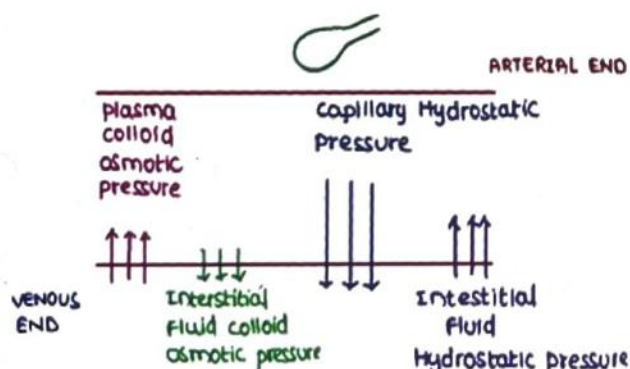 ARTERIAL END
Plasma
colloid
osmotic
pressure
Capillary Hydrostatic
Pressure
VENOUS
END
Interstitial
Fluid colloid
osmotic pressure
Intestitial
Fluid
Hydrostatic pressure